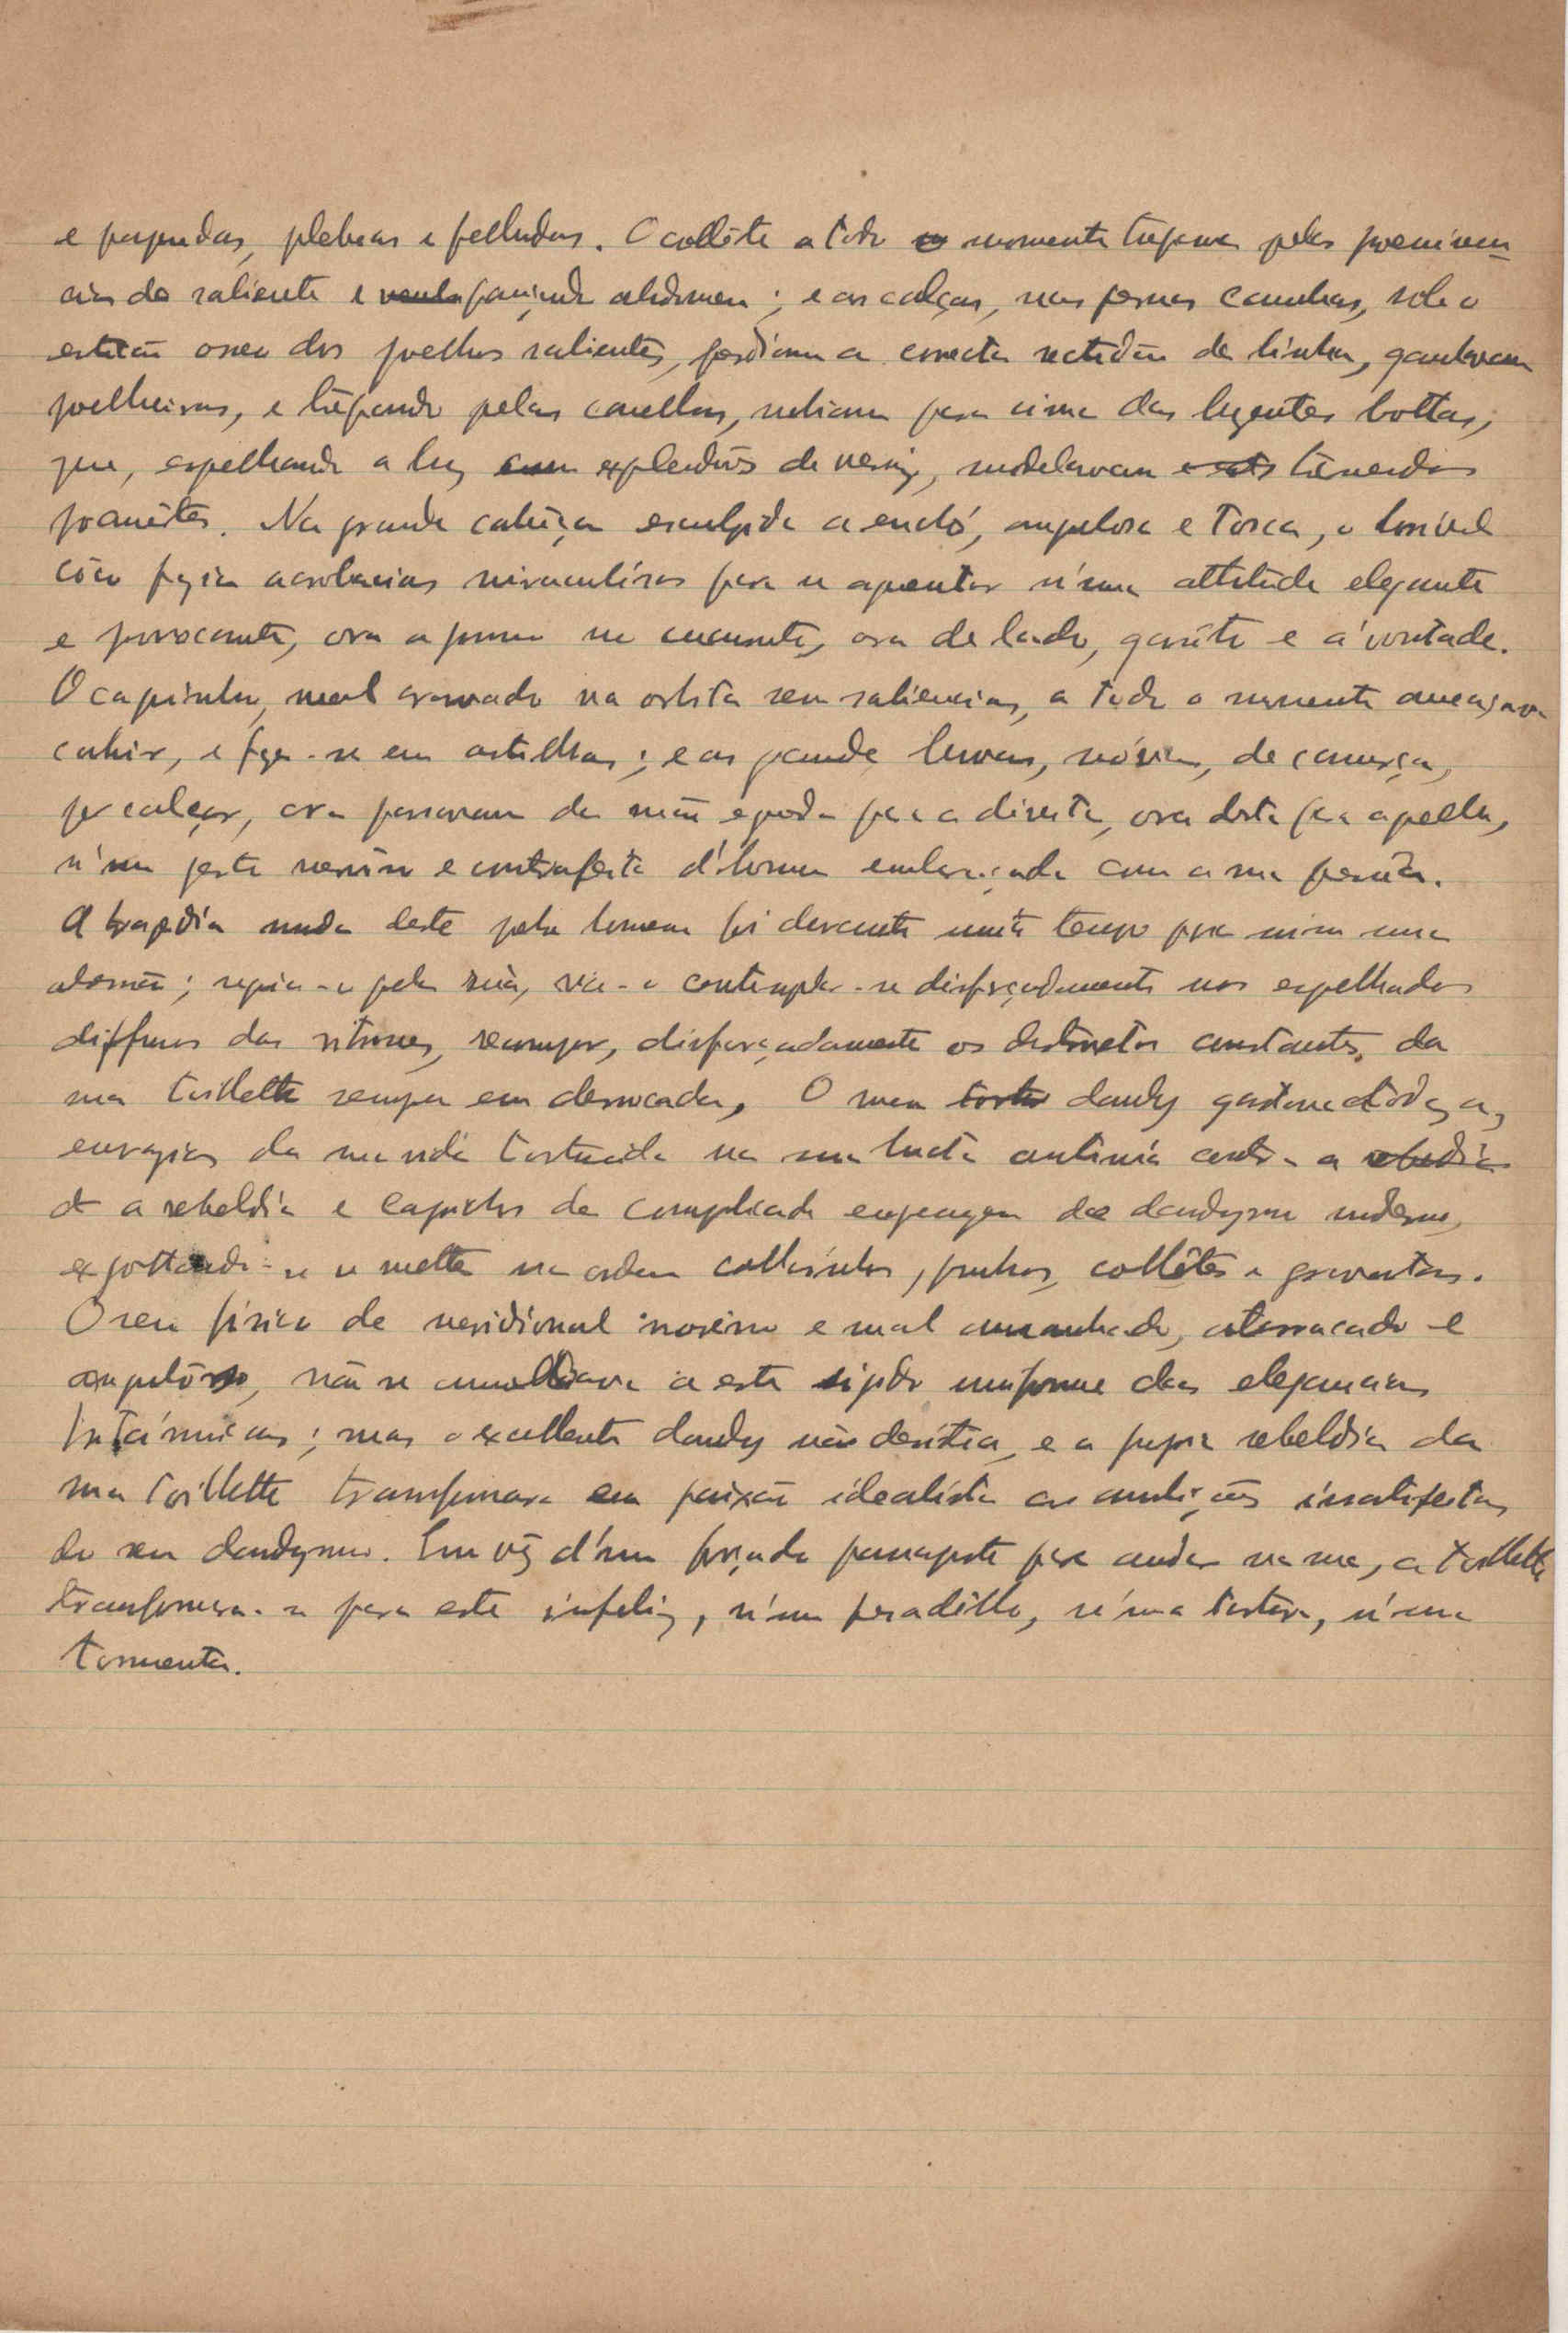 e papudas, plebeas e felludas. O collête a todo o momento trepava pelas proeminen-
cias do saliente e pançudo abdomen; e as calças, nas pernas cambas, sob o
esticão osseo dos joelhos salientes, perdiam a correcta rectidão de linha, ganhavam
joelheiras, e trepando pelas canellas, subiam para cima das luzentes bottas,
que, espelhando a luz explendores de verniz, modelavam tremendos
joanêtes. Na grande cabêça esculpida a enchó, angulosa e tosca, o horrivel
côco fazia acrobacias miraculosas para se aguentar n'uma attitude elegante
e provocante, ora a prumo ora de lado, garôto e á vontade.
O caquinho, mal cravado na orbita sem saliencias, a todo o momento ameaçava
cahir, e fazer-se em astilhas; e as grandes luvas, nóvas, de camurça,
por calçar, ora passavam da mão esquerda para a direita, ora desta para aquella,
n'um gesto nervoso e contrafeito d'homem embaraçado com a sua pessôa.
A tragedia muda deste pobre homem foi durante muito tempo para mim uma
obsessão; seguia-o pela rúa, via-o contemplar-se disfarçadamente nos espelhados
diffusos das vitrines, recompor, disfarçadamente os destroços constantes da
sua toillette sempre em derrocada. O meu dandy gastava todas as
energias da sua vida torturada na sua lucta continua contra a
a rebeldia e caprichos da complicada engrenagem do dandysmo moderno,
exgottando-se a metter na ordem collarinhos, punhos, collêtes e gravatas.
O seu fisico de meridional e mal amanhado, atarracado e
anguloso, não se amoldava a este rigido uniforme das elegancias
británnicas; mas o excellente dandy não desistia, e a propria rebeldia da
sua toillette transformara em paixão idealista as ambições insatisfeitas
do seu dandysmo. Em vêz d'um forçado passaporte para andar na rua, a toillette
transformara-se para este infeliz, n'um pesadêllo, n'uma tortura, n'uma
tormenta.